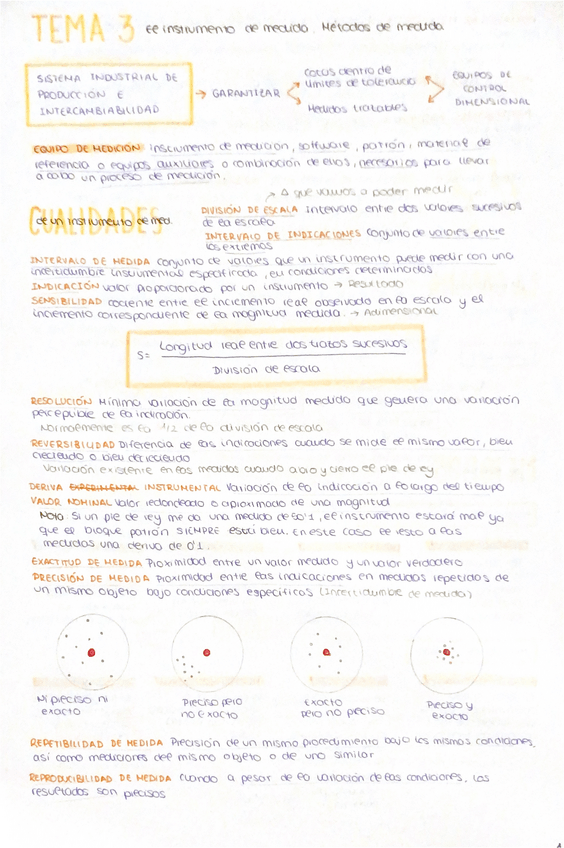 TEMA 3 El instrumento de medida. Métodos de medida
SISTEMA INDUSTRIAL DE
PRODUCCIÓN E
INTERCAMBIABILIDAD
→ GARANTIZAR
Cotas dentro de
límites de tolerancia
Medidas trazables
EQUIPOS DE
CONTROL
DIMENSIONAL
EQUIPO DE MEDICIÓN instrumento de medición, software, patrón, material de
referencia o equipos auxiliares o combinación de ellos, necesarios para llevar
a cabo un proceso de medición.
→ A que vamos a poder medir
CUALIDADES de un instrumento de med.
DIVISIÓN DE ESCALA intervalo entre dos valores sucesivos
de la escala
INTERVALO DE INDICACIONES conjunto de valores entre
los extremos
INTERVALO DE MEDIDA conjunto de valores que un instrumento puede medir con una
incertidumbre instrumental especificada, en condiciones determinadas
INDICACIÓN valor proporcionado por un instrumento → Resultado
SENSIBILIDAD cociente entre el incremento real observado en la escala y el
incremento correspondiente de la magnitud medida. → Adimensional
S = Longitud real entre dos trazos sucesivos
División de escala
RESOLUCIÓN Mínima variación de la magnitud medida que genera una variación
perceptible de la indicación.
Normalmente es la 1/2 de la división de escala
REVERSIBILIDAD Diferencia de las indicaciones cuando se mide el mismo valor, bien
creciendo o bien decreciendo
Variación existente en las medidas cuando abro y cierro el pie de rey
DERIVA EXPERIMENTAL INSTRUMENTAL Variación de la indicación a lo largo del tiempo
VALOR NOMINAL Valor redondeado o aproximado de una magnitud
Nota: Si un pie de rey me da una medida de 50'1, el instrumento estará mal ya
que el bloque patrón SIEMPRE está bien. En este caso le resto a las
medidas una deriva de 0'1.
EXACTITUD DE MEDIDA Proximidad entre un valor medido y un valor verdadero
PRECISIÓN DE MEDIDA Proximidad entre las indicaciones en medidas repetidas de
un mismo objeto bajo condiciones específicas (Incertidumbre de medida)
Ni preciso ni
exacto
Preciso pero
no exacto
Exacto
pero no preciso
Preciso y
exacto
REPETIBILIDAD DE MEDIDA Precisión de un mismo procedimiento bajo las mismas condiciones,
así como mediciones del mismo objeto o de uno similar
REPRODUCIBILIDAD DE MEDIDA Cuando a pesar de la variación de las condiciones, los
resultados son precisos